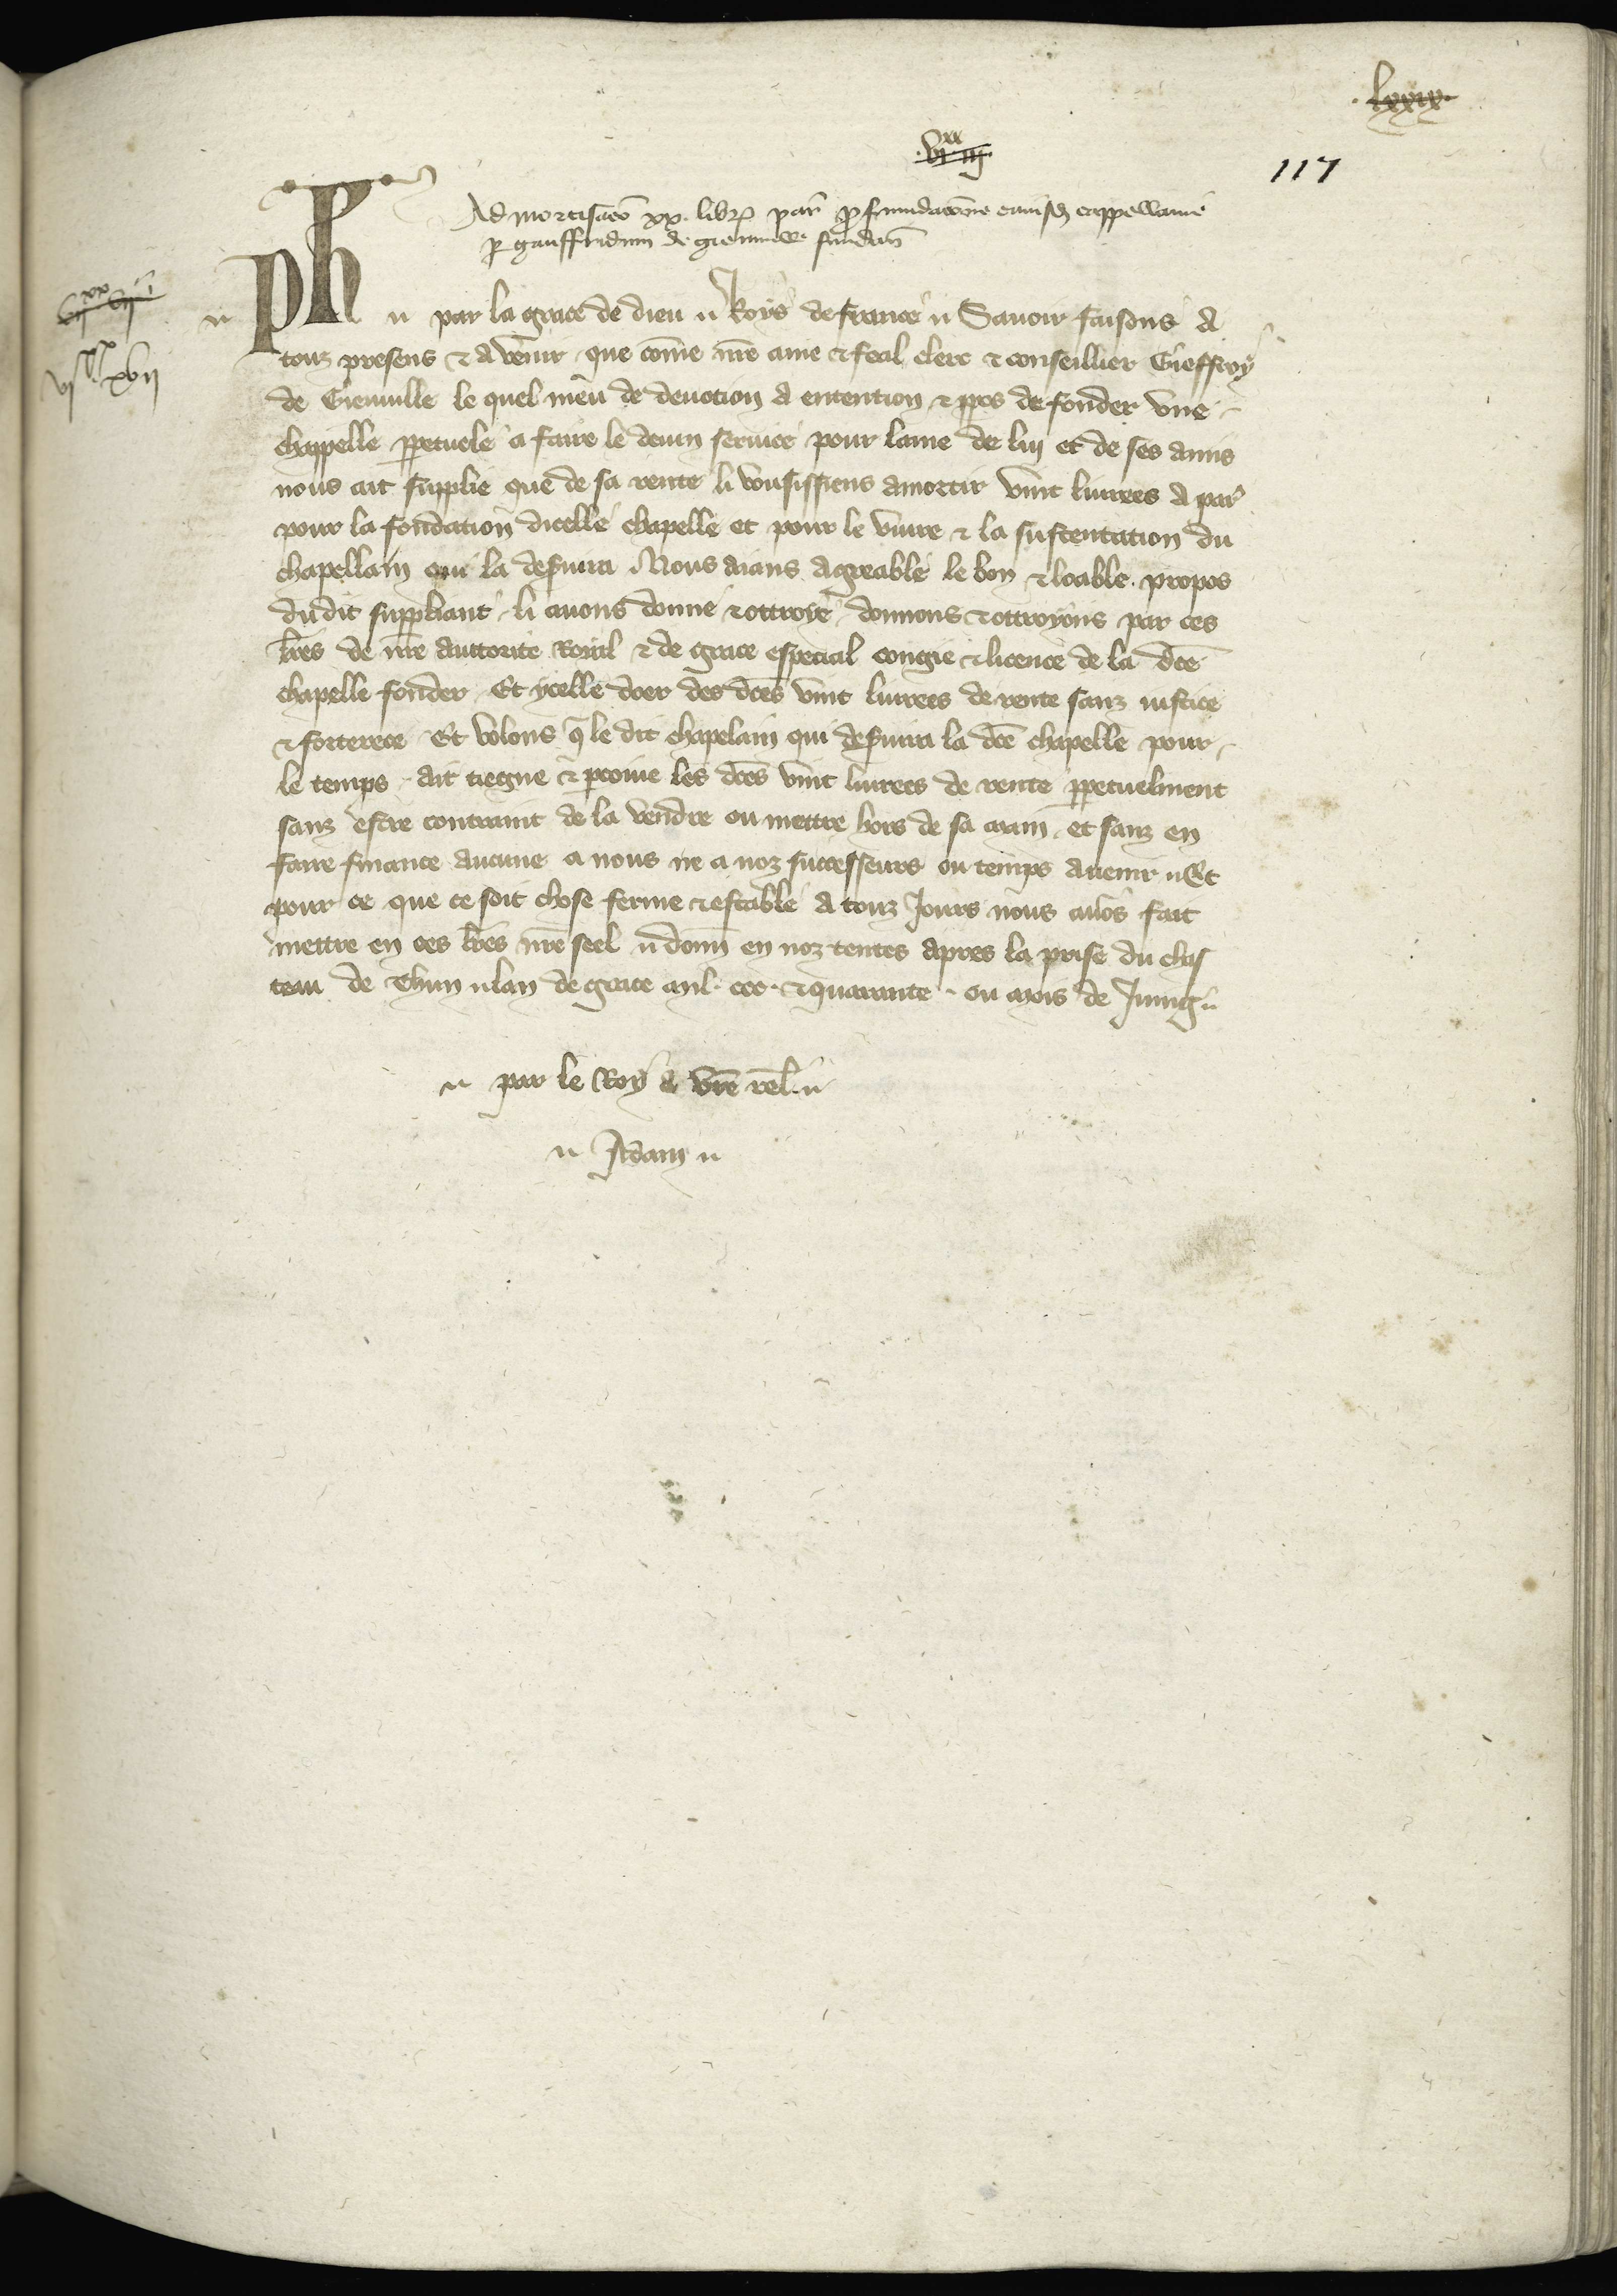 .lxxix.
.vi.xx iij.
117
Admortisacō xx. libr̄ par̄ pro fundacōne cuiusdā cappellanie
per gauffridum de gienville fundate
vixx xvii
Ph̄ par la grace de dieu Roys de france Sauoir faisons A
touz presens & Auenir que com̄e nr̄e ame & feal clerc & conseillier Gieffroy
de Gienuille le quel meu de deuotion A entention & ppos de fonder vne
chappelle ppetuele a faire le deuin seruice pour lame de luj et de ses amis
nous ait supplie que de sa rente li vousissiens amortir vint liurees A par̄
pour la fondation dicelle chapelle et pour le viure & la sustentation du
chapellain qui la desseruira Nous aians Agreable le bon & loable propos
du dit suppliant li auons donne & ottroye donnons & ottroyons par ces
lr̄es de nr̄e auttorite Roial & de grace especial congie & licence de la dc̄e
chapelle fonder Et ycelle doer des dc̄es vint liurees de rente sanz iustice
& forterece Et volons q̄ le dit chapelain qui desseruira la dc̄e chapelle pour
le temps ait tiegne & pcoiue les dc̄es vint liurees de rente ppetuelment
sanz estre contraint de la vendre ou mettre hors de sa main et sanz en
faire finance aucune a nous ne a noz successeurs ou temps auenir Et
pour ce que ce soit chose ferme & estable A touz Jours nous auōs fait
mettre en ces lr̄es nr̄e seel donn̄ en noz tentes apres la prise du chas
teau de Thun lan de grace mil. ccc. & quarante ou mois de Juing
par le Roy A vr̄e rel̄.
Adam